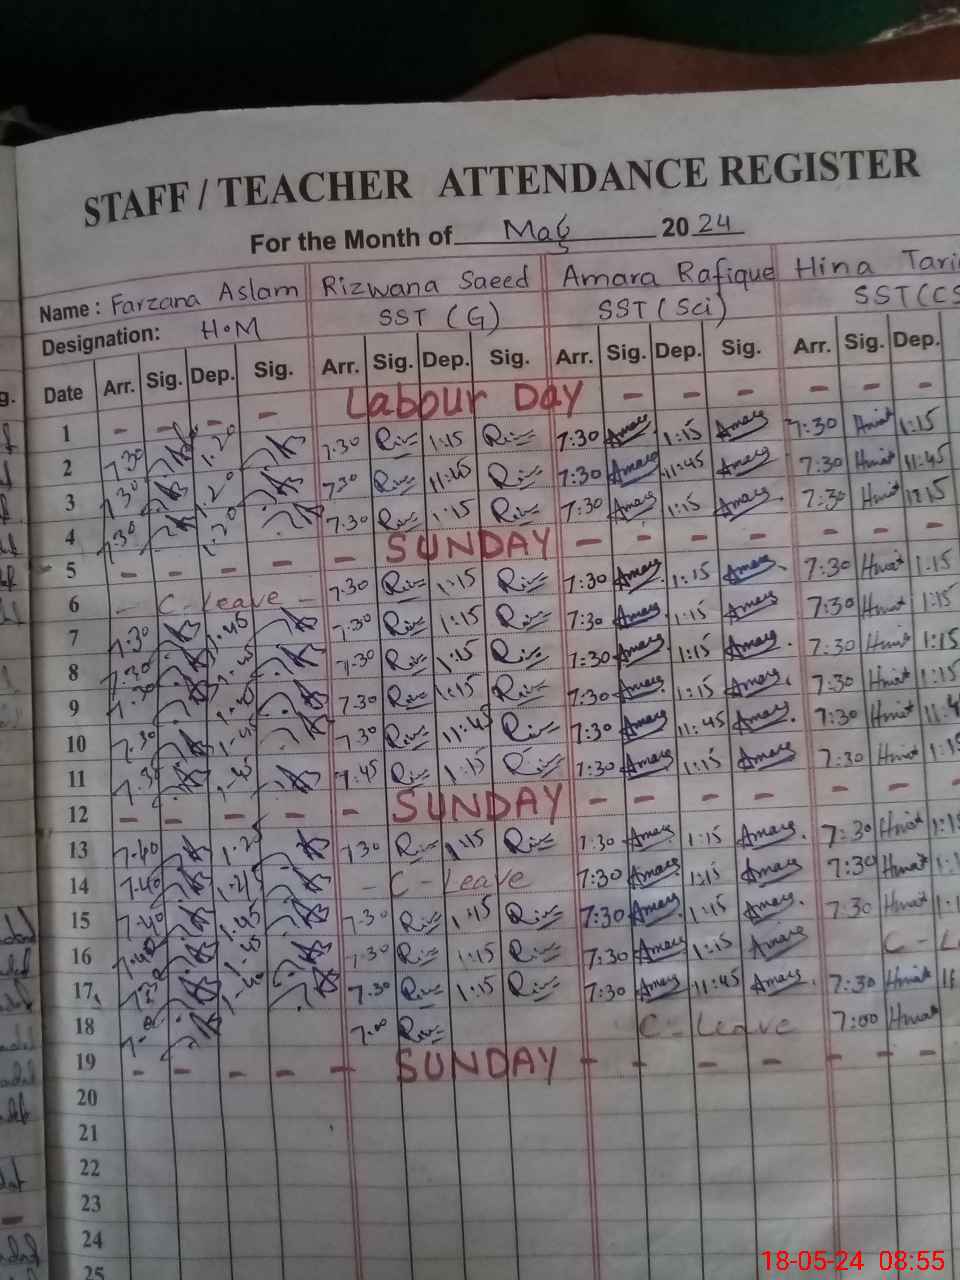 STAFF / TEACHER ATTENDANCE REGISTER
For the Month of May 2024
Name: Farzana Aslam Rizwana Saeed Amara Rafique Hina
Designation: H.M SST (G) SST (Sci) SST (CS
Date Arr. Sig. Dep. Sig. Arr. Sig. Dep. Sig. Arr. Sig. Dep. Sig. Arr. Sig. Dep.
1 - - - - Labour Day - - - - - -
2 7.30 1.20 7.30 Riz 1:15 Riz 7:30 Amara 1:15 Amara 7:30 Hina 1:15
3 7.30 1.20 7.30 Riz 11:45 Riz 7:30 Amara 11:45 Amara 7:30 Hina 11:45
4 7.30 1.20 7.30 Riz 1:15 Riz 7:30 Amara 1:15 Amara 7:30 Hina 1:15
5 - - - - - SUNDAY - - - - - - -
6 - C-Leave - 7.30 Riz 1:15 Riz 7:30 Amara 1:15 Amara 7:30 Hina 1:15
7 7.30 1.45 7.30 Riz 1:15 Riz 7:30 Amara 1:15 Amara 7:30 Hina 1:15
8 7.30 1.45 7.30 Riz 1:15 Riz 7:30 Amara 1:15 Amara 7:30 Hina 1:15
9 7.30 1.45 7.30 Riz 1:15 Riz 7:30 Amara 1:15 Amara 7:30 Hina 1:15
10 7.30 1.45 7.30 Riz 11:45 Riz 7:30 Amara 11:45 Amara 7:30 Hina 11:4
11 7.30 1.45 7.45 Riz 1:15 Riz 7:30 Amara 1:15 Amara 7:30 Hina 1:15
12 - - - - - SUNDAY - - - - - - -
13 7.40 1.25 7.30 Riz 1:15 Riz 7:30 Amara 1:15 Amara 7:30 Hina 1:1
14 7.40 - C-Leave 7:30 Amara 1:15 Amara 7:30 Hina 1:1
15 7.40 1.45 7.30 Riz 1:15 Riz 7:30 Amara 1:15 Amara 7:30 Hina 1:1
16 7.40 1.45 7.30 Riz 1:15 Riz 7:30 Amara 1:15 Amara C-L
17 7.30 1.40 7.30 Riz 1:15 Riz 7:30 Amara 11:45 Amara 7:30 Hina 11
18 7.00 Riz C-Leave 7:00 Hina
19 - - - - - SUNDAY - - - - - - -
20
21
22
23
24
25
18-05-24 08:55